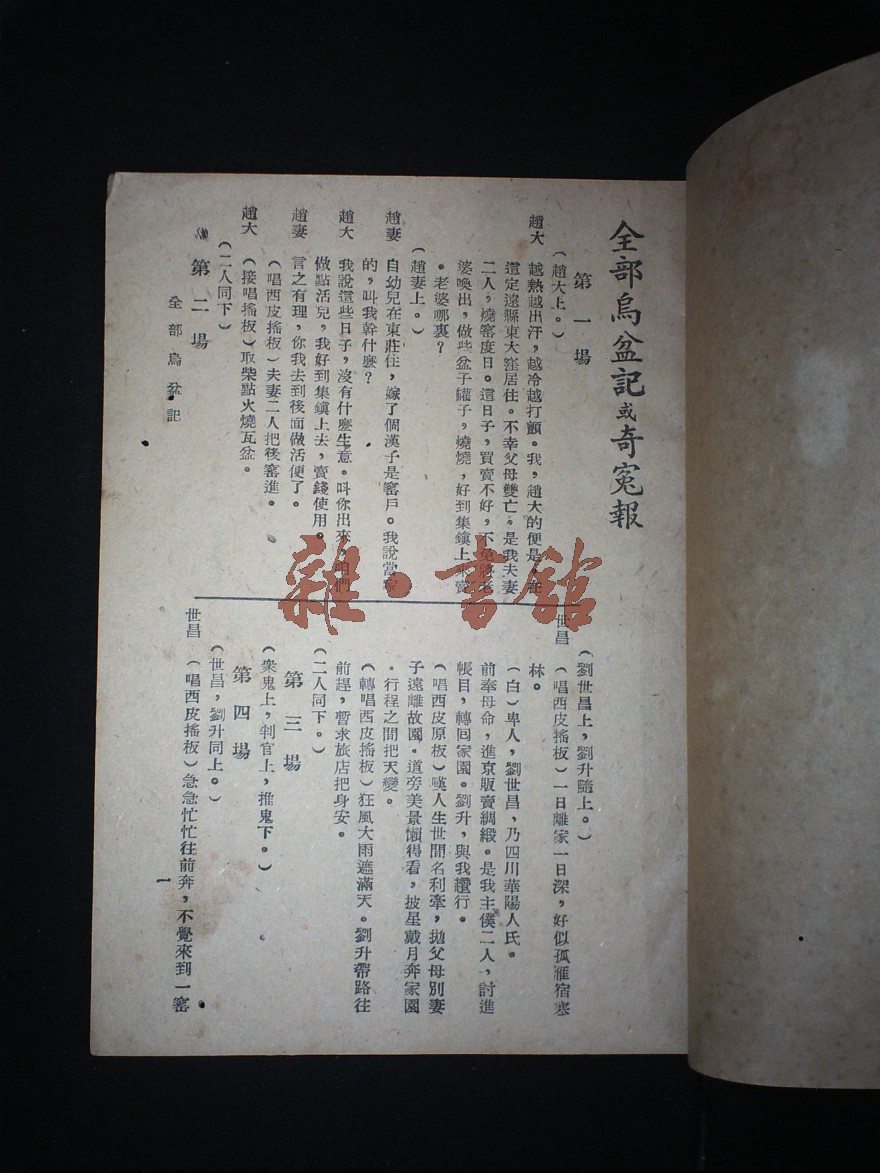 全部烏盆記或奇冤報
第一場
(趙大上。)
趙大 越熱越出汗,越冷越打顫。我,趙大的便是,在
這定遠縣東大窪居住。不幸父母雙亡。是我夫妻
二人,燒窰度日。這日子,買賣不好,不免將老
婆喚出,做些盆子罐子,燒燒,好到集鎮上來賣
。老婆哪裏?
(趙妻上。)
趙妻 自幼兒在東莊住,嫁了個漢子是窰戶。我說當家
的,叫我幹什麼?
趙大 我說這些日子,沒有什麼生意。叫你出來,咱們
做點活兒,我好到集鎮上去,賣錢使用。
趙妻 言之有理,你我去到後面做活便了。
(唱西皮搖板)夫妻二人把後窰進。
趙大 (接唱搖板)取柴點火燒瓦盆。
(二人同下)
第二場
全部烏盆記
(劉世昌上,劉升隨上。)
世昌 (唱西皮搖板)一日離家一日深,好似孤雁宿寒
林。
(白)卑人,劉世昌,乃四川華陽人氏。
前奉母命,進京販賣綢緞。是我主僕二人,討進
帳目,轉回家園。劉升,與我趲行。
(唱西皮原板)嘆人生世間名利牽,拋父母別妻
子遠離故園。道旁美景懶得看,披星戴月奔家園
。行程之間把天變。
(轉唱西皮搖板)狂風大雨遮滿天。劉升帶路往
前趕,暫求旅店把身安。
(二人同下。)
第三場
(衆鬼上,判官上,推鬼下。)
第四場
(世昌,劉升同上。)
世昌 (唱西皮搖板)急急忙忙往前奔,不覺來到一窰
一
雜·書館